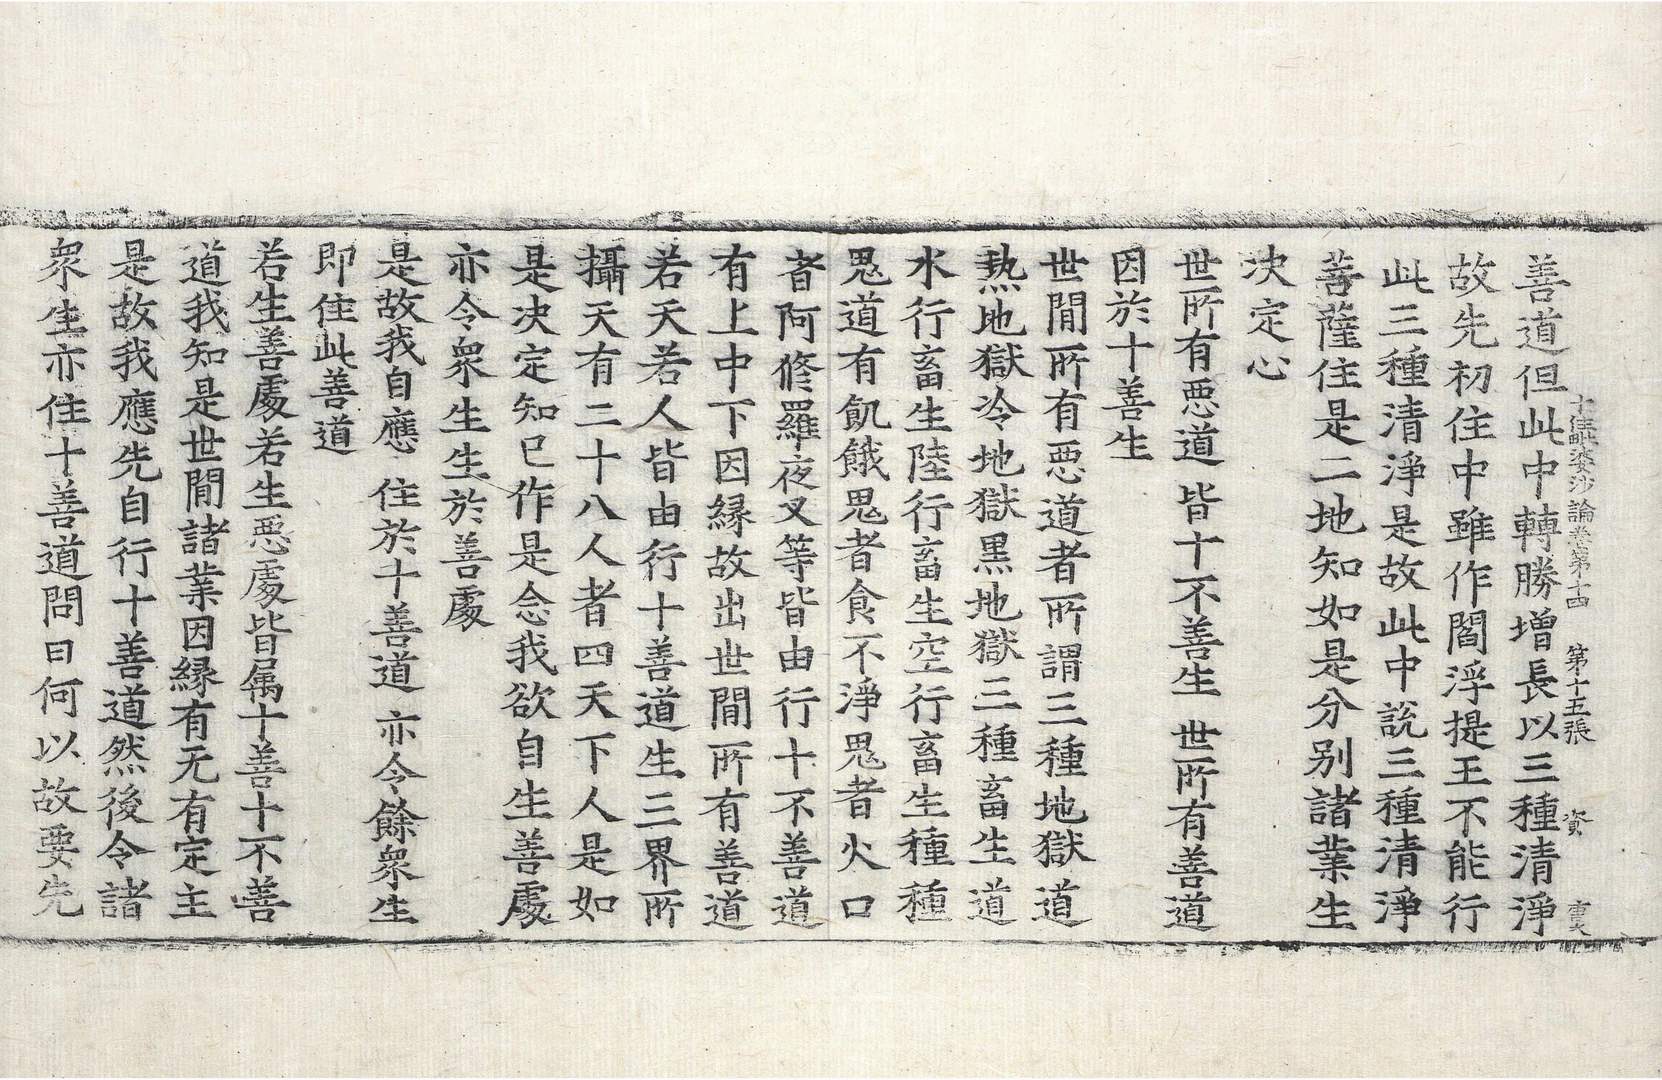 十住毗婆沙論卷第十四 第十五張 資
善道但此中轉勝增長以三種清淨
故先初住中雖作閻浮提王不能行
此三種清淨是故此中說三種清淨
菩薩住是二地知如是分別諸業生
決定心
世所有惡道 皆十不善生 世所有善道
因於十善生
世間所有惡道者所謂三種地獄道
熱地獄冷地獄黑地獄三種畜生道
水行畜生陸行畜生空行畜生種種
鬼道有飢餓鬼者食不淨鬼者火口
者阿修羅夜叉等皆由行十不善道
有上中下因緣故出世間所有善道
若天若人皆由行十善道生三界所
攝天有二十八人者四天下人是如
是決定知已作是念我欲自生善處
亦令眾生生於善處
是故我自應 住於十善道 亦令餘眾生
即住此善道
若生善處若生惡處皆属十善十不善
道我知是世間諸業因緣有无有定主
是故我應先自行十善道然後令諸
眾生亦住十善道問曰何以故要先